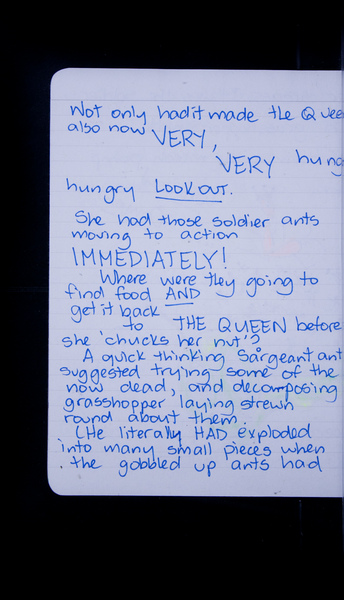 Not only had it made the Quee
also now VERY,
VERY hung
hungry LOOK OUT.
She had those soldier ants
moving to action
IMMEDIATELY!
Where were they going to
find food AND
get it back
to THE QUEEN before
she 'chucks her nut'?
A quick thinking Sargeant ant
suggested trying some of the
now dead, and decomposing
grasshopper laying strewn
round about them.
(He literally HAD exploded
into many small pieces when
the gobbled up ants had